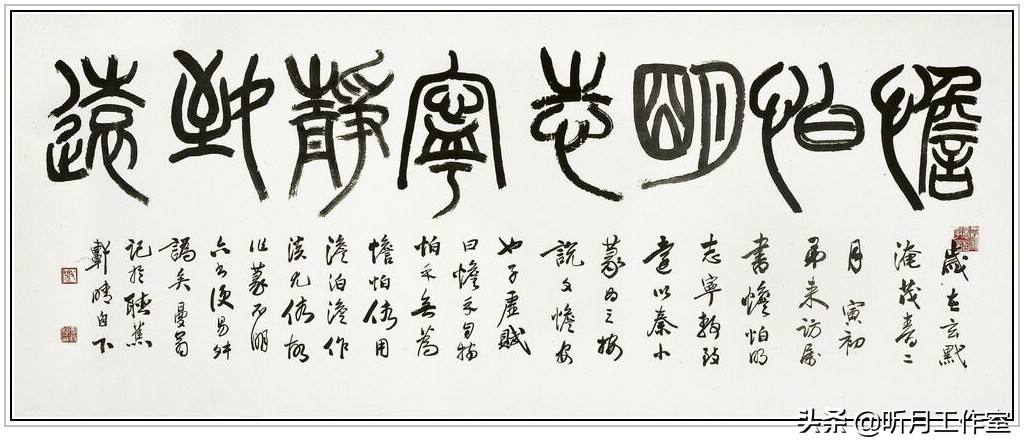 憺怕朙志寧靜致遠
歲在玄黓
淹茂春二
月 寅初
弟来訪屬
書憺怕明
志寧靜致
遠以秦小
篆为之按
說文憺安
也子虛賦
曰憺乎自持
怕乎無為
憺怕俗用
澹泊澹作
淡尤俗故
作篆不明
六書便易舛
譌矣曼翁
記於聴蕉
軒晴窗下
头条 @听月工作室